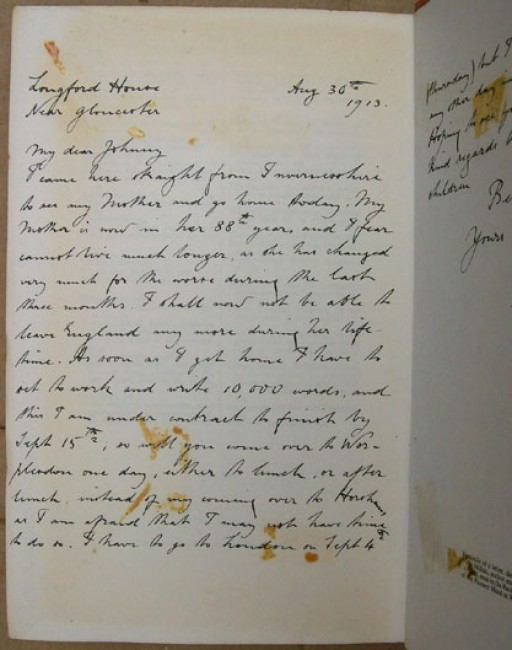 Longford House Aug 30th
Near Gloucester 1913.
My dear Johnny
I came here straight from Invernesshire
to see my Mother and go home today. My
Mother is now in her 88th year, and I fear
cannot live much longer, as she has changed
very much for the worse during the last
three months. I shall now not be able to
leave England any more during her life-
time. As soon as I get home I have to
set to work and write 10,000 words, and
this I am under contract to finish by
Sept 15th, so will you come over to Wor-
plesdon one day, either to lunch, or after
lunch, instead of my coming over to Horsham,
as I am afraid that I may not have time
to do so. I have to go to London on Sept 4th
(Thursday) but
any other day
Hoping
kind regards
children
Yours